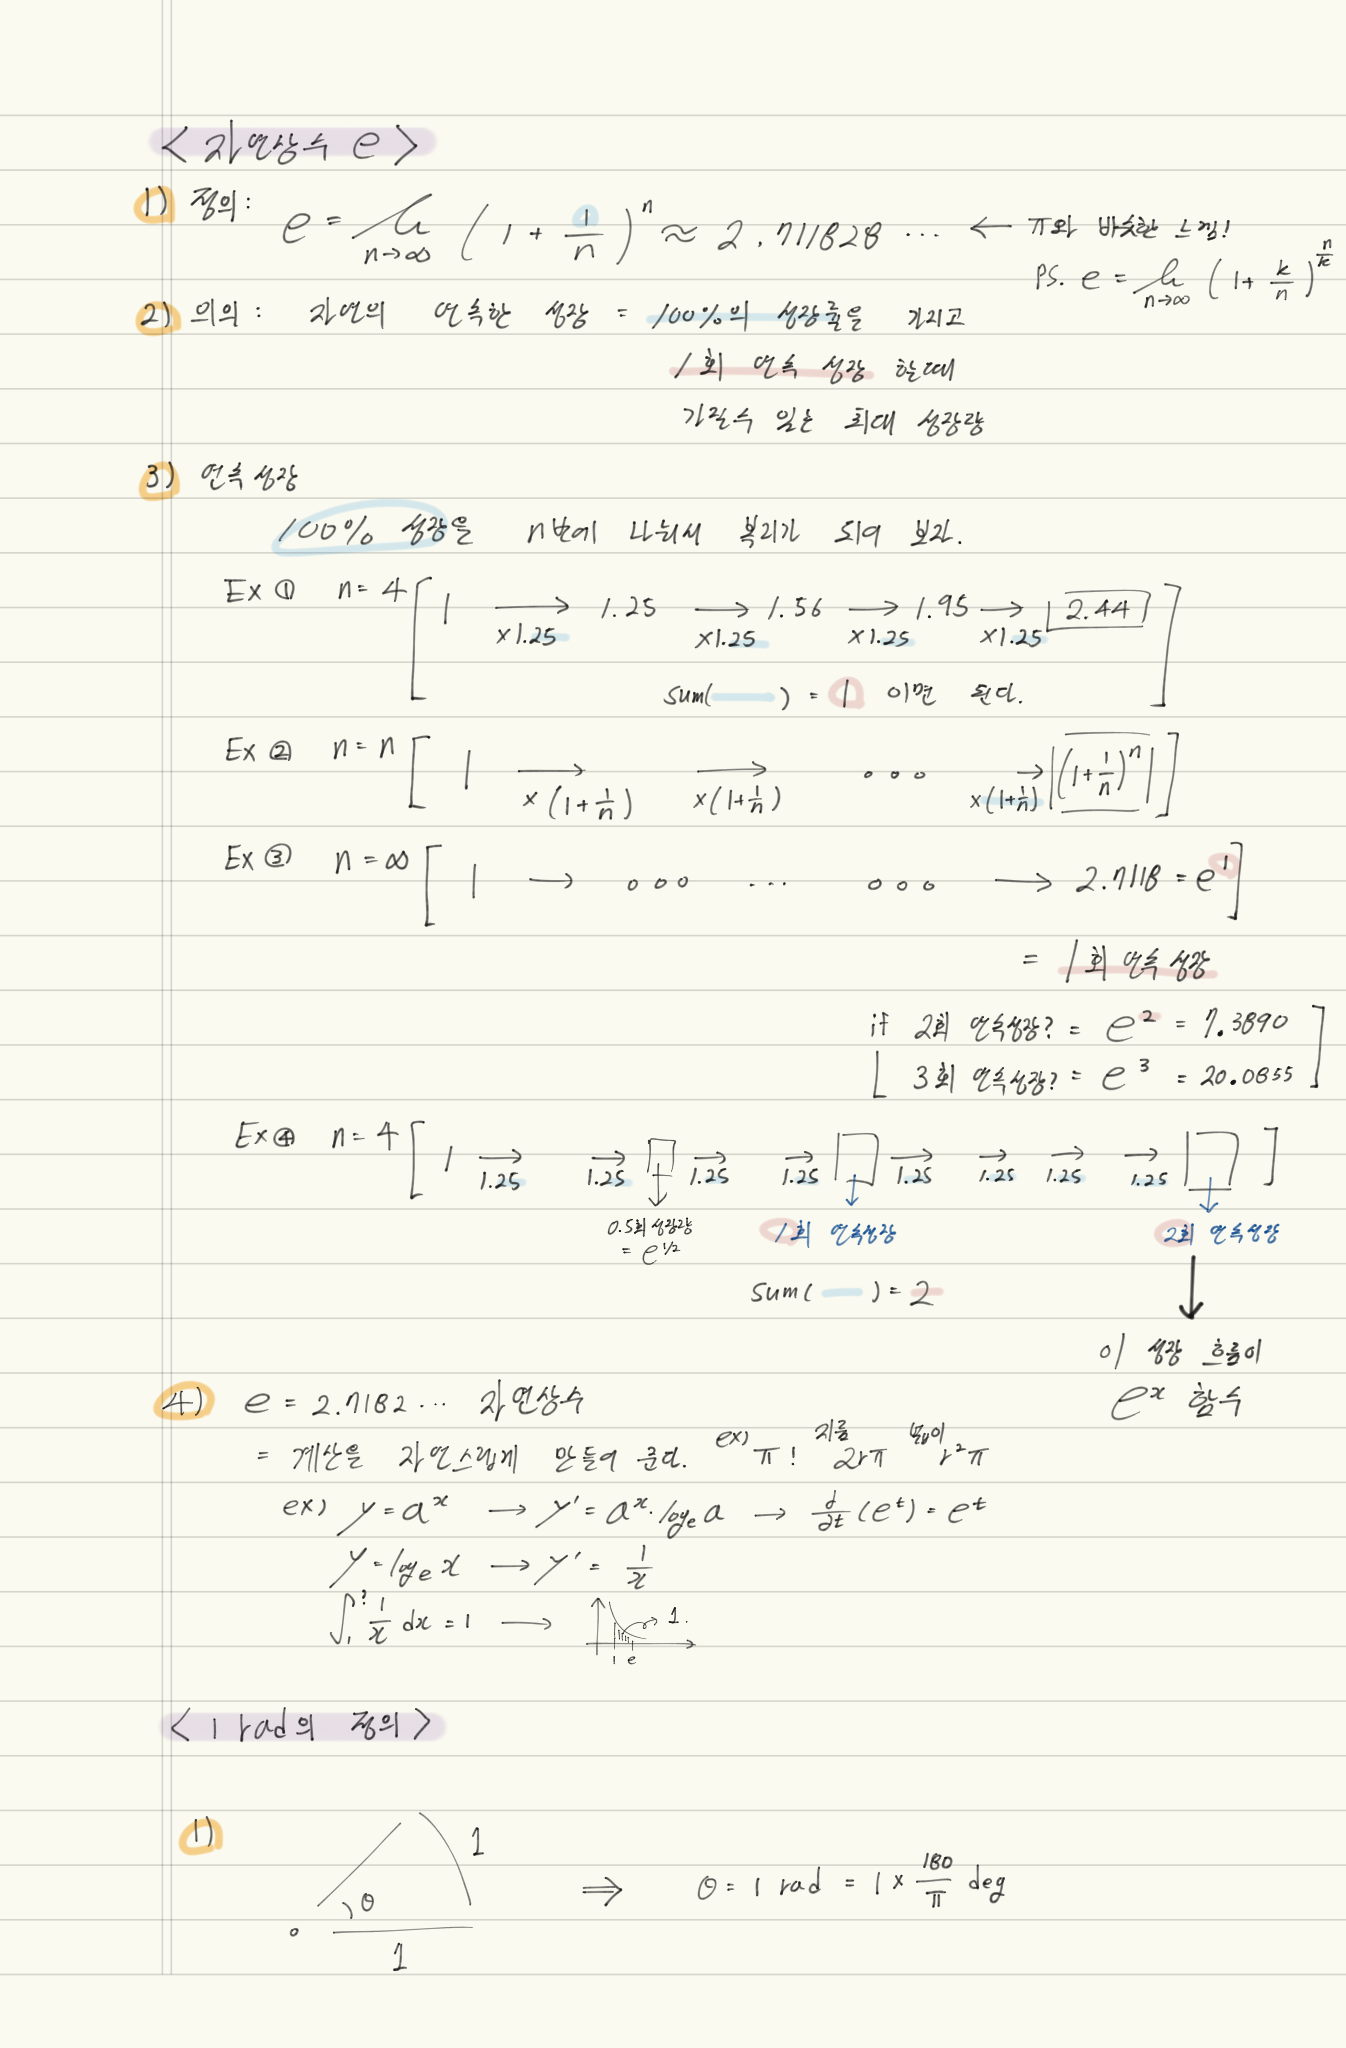 < 자연상수 e >
1) 정의: e = lim n→∞ (1 + 1/n)^n ≈ 2.711828 ... ← π와 비슷한 느낌!
PS. e = lim n→∞ (1 + k/n)^(n/k)
2) 의의 : 자연의 연속한 성장 = 100%의 성장률을 가지고
1회 연속 성장 할때
가질수 있는 최대 성장량
3) 연속성장
100% 성장을 n번에 나눠서 복리가 되어 보자.
Ex ① n = 4 [ 1 → ×1.25 1.25 → ×1.25 1.56 → ×1.25 1.95 → ×1.25 2.44 ]
sum( ) = 1 이면 된다.
Ex ② n = n [ 1 → ×(1+1/n) → ×(1+1/n) ∘∘∘ → ×(1+1/n) (1+1/n)^n ]
Ex ③ n = ∞ [ 1 → ∘∘∘ ... ∘∘∘ → 2.7118 = e^1 ]
= 1회 연속 성장
if 2회 연속성장? = e^2 = 7.3890
3회 연속성장? = e^3 = 20.0855
Ex ④ n = 4 [ 1 → 1.25 → 1.25 → 1.25 → 1.25 → 1.25 → 1.25 → 1.25 → 1.25 ]
0.5회 성장량 1회 연속성장 2회 연속성장
= e^1/2
sum( ) = 2
이 성장 흐름이
e^x 함수
4) e = 2.7182 ... 자연상수
= 계산을 자연스럽게 만들어 준다. ex) π! 지름 2rπ 넓이 r²π
ex) y = a^x → y' = a^x · log_e a → d/dt (e^t) = e^t
y = log_e x → y' = 1/x
∫_1^? 1/x dx = 1 → 1.
1 e
< 1 rad의 정의 >
1) 1
θ ⇒ θ = 1 rad = 1 × 180/π deg
1